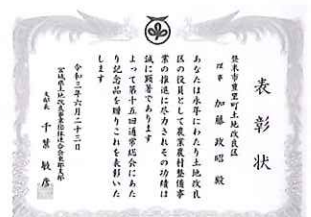 表彰状
登米市豊里町土地改良区
理事 加藤政昭 殿
あなたは永年にわたり土地改良
区の役員として農業農村整備事
業の推進に尽力されその功績は
誠に顕著であります
よって第十五回通常総会にあた
り記念品を贈りこれを表彰いた
します
令和三年六月二十三日
宮城県土地改良事業団体連合会東部支部
支部長 千葉敏彦